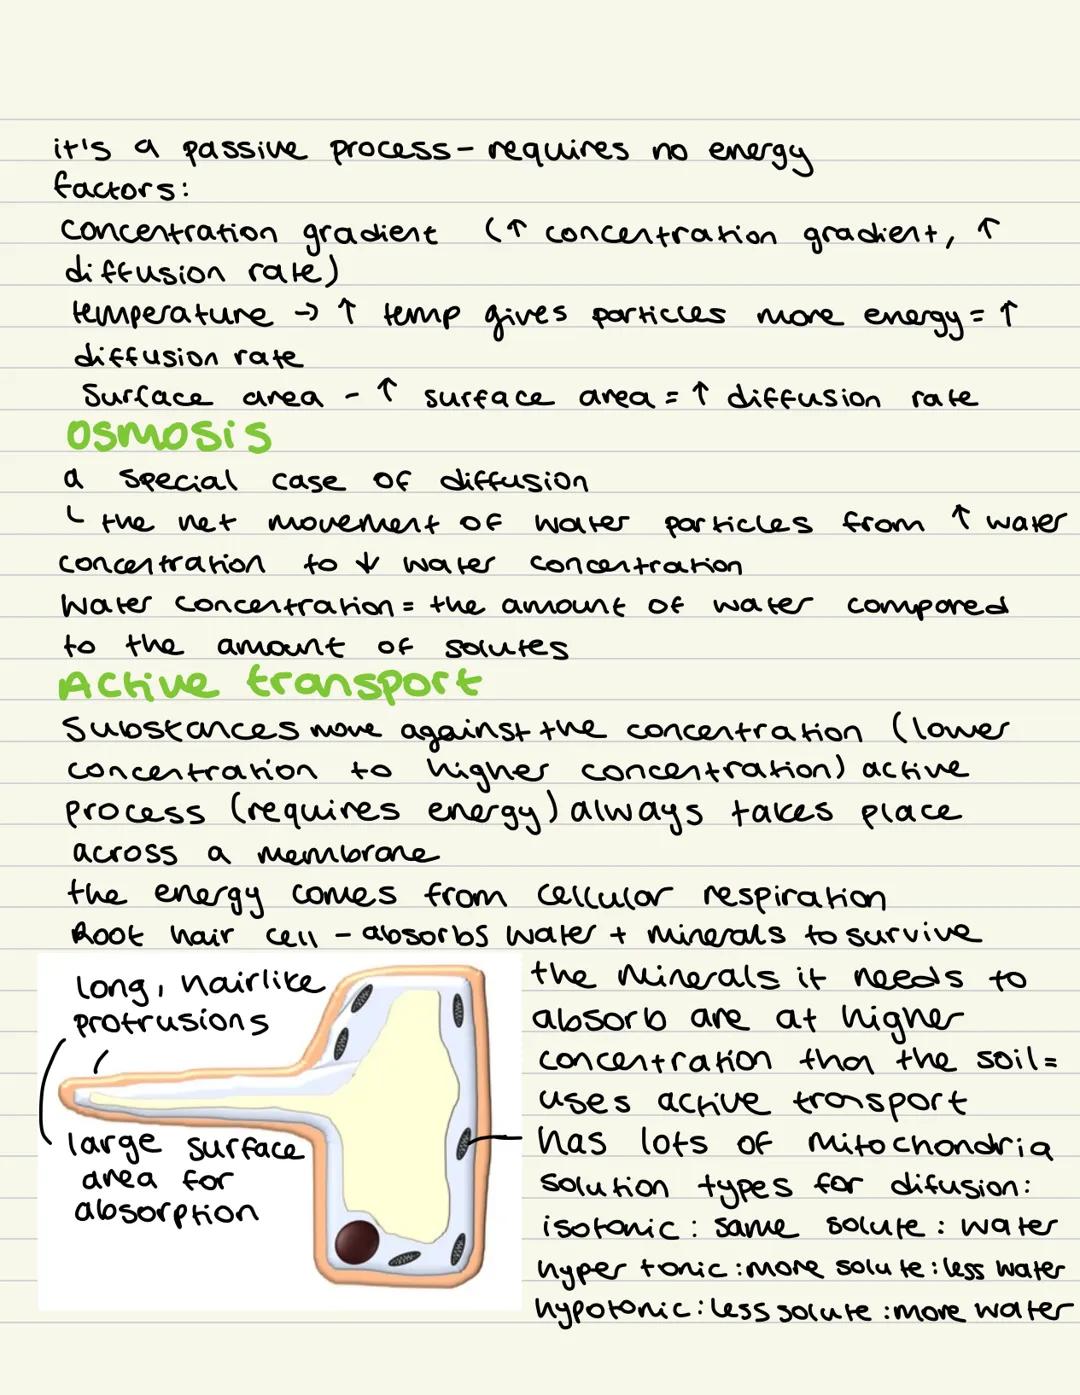 it's a passive process- requires no energy
factors:
concentration gradient (↑ concentration gradient, ↑
diffusion rate)
temperature → ↑ temp gives particles more energy = ↑
diffusion rate
surface area - ↑ surface area = ↑ diffusion rate
osmosis
a special case of diffusion
↳ the net movement of water particles from ↑ water
concentration to ↓ water concentration
water concentration = the amount of water compared
to the amount of solutes
Active transport
Substances move against the concentration (lower
concentration to higher concentration) active
process (requires energy) always takes place
across a membrane
the energy comes from cellular respiration
Root hair cell - absorbs water + minerals to survive
long, hairlike
protrusions
large surface
area for
absorption
the minerals it needs to
absorb are at higher
concentration than the soil =
uses active transport
has lots of mitochondria
solution types for difusion:
isotonic : same solute : water
hyper tonic : more solute : less water
hypotonic : less solute : more water